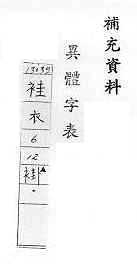 補充資料
異體字表
袿
衣
6
12
袿